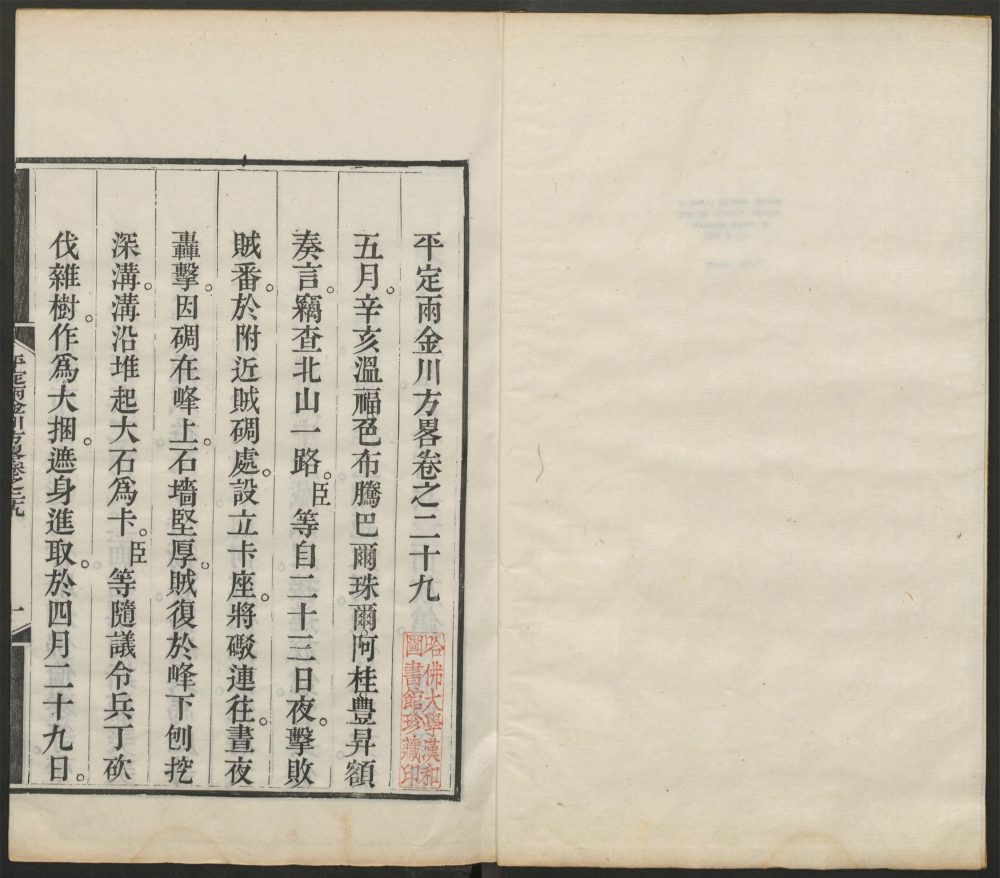 平定兩金川方畧卷之二十九
哈佛大學漢和
圖書館珍藏印
五月。辛亥溫福。色布騰巴爾珠爾。阿桂。豐昇額
奏言。竊查北山一路。臣等自二十三日夜。擊敗
賊番。於附近賊碉處。設立卡座。將礮連往。晝夜
轟擊。因碉在峰上。石墻堅厚。賊復於峰下刨挖
深溝。溝沿堆起大石為卡。臣等隨議令兵丁砍
伐雜樹。作爲大捆。遮身進取。於四月二十九日。
平定兩金川方畧卷之二十九
一